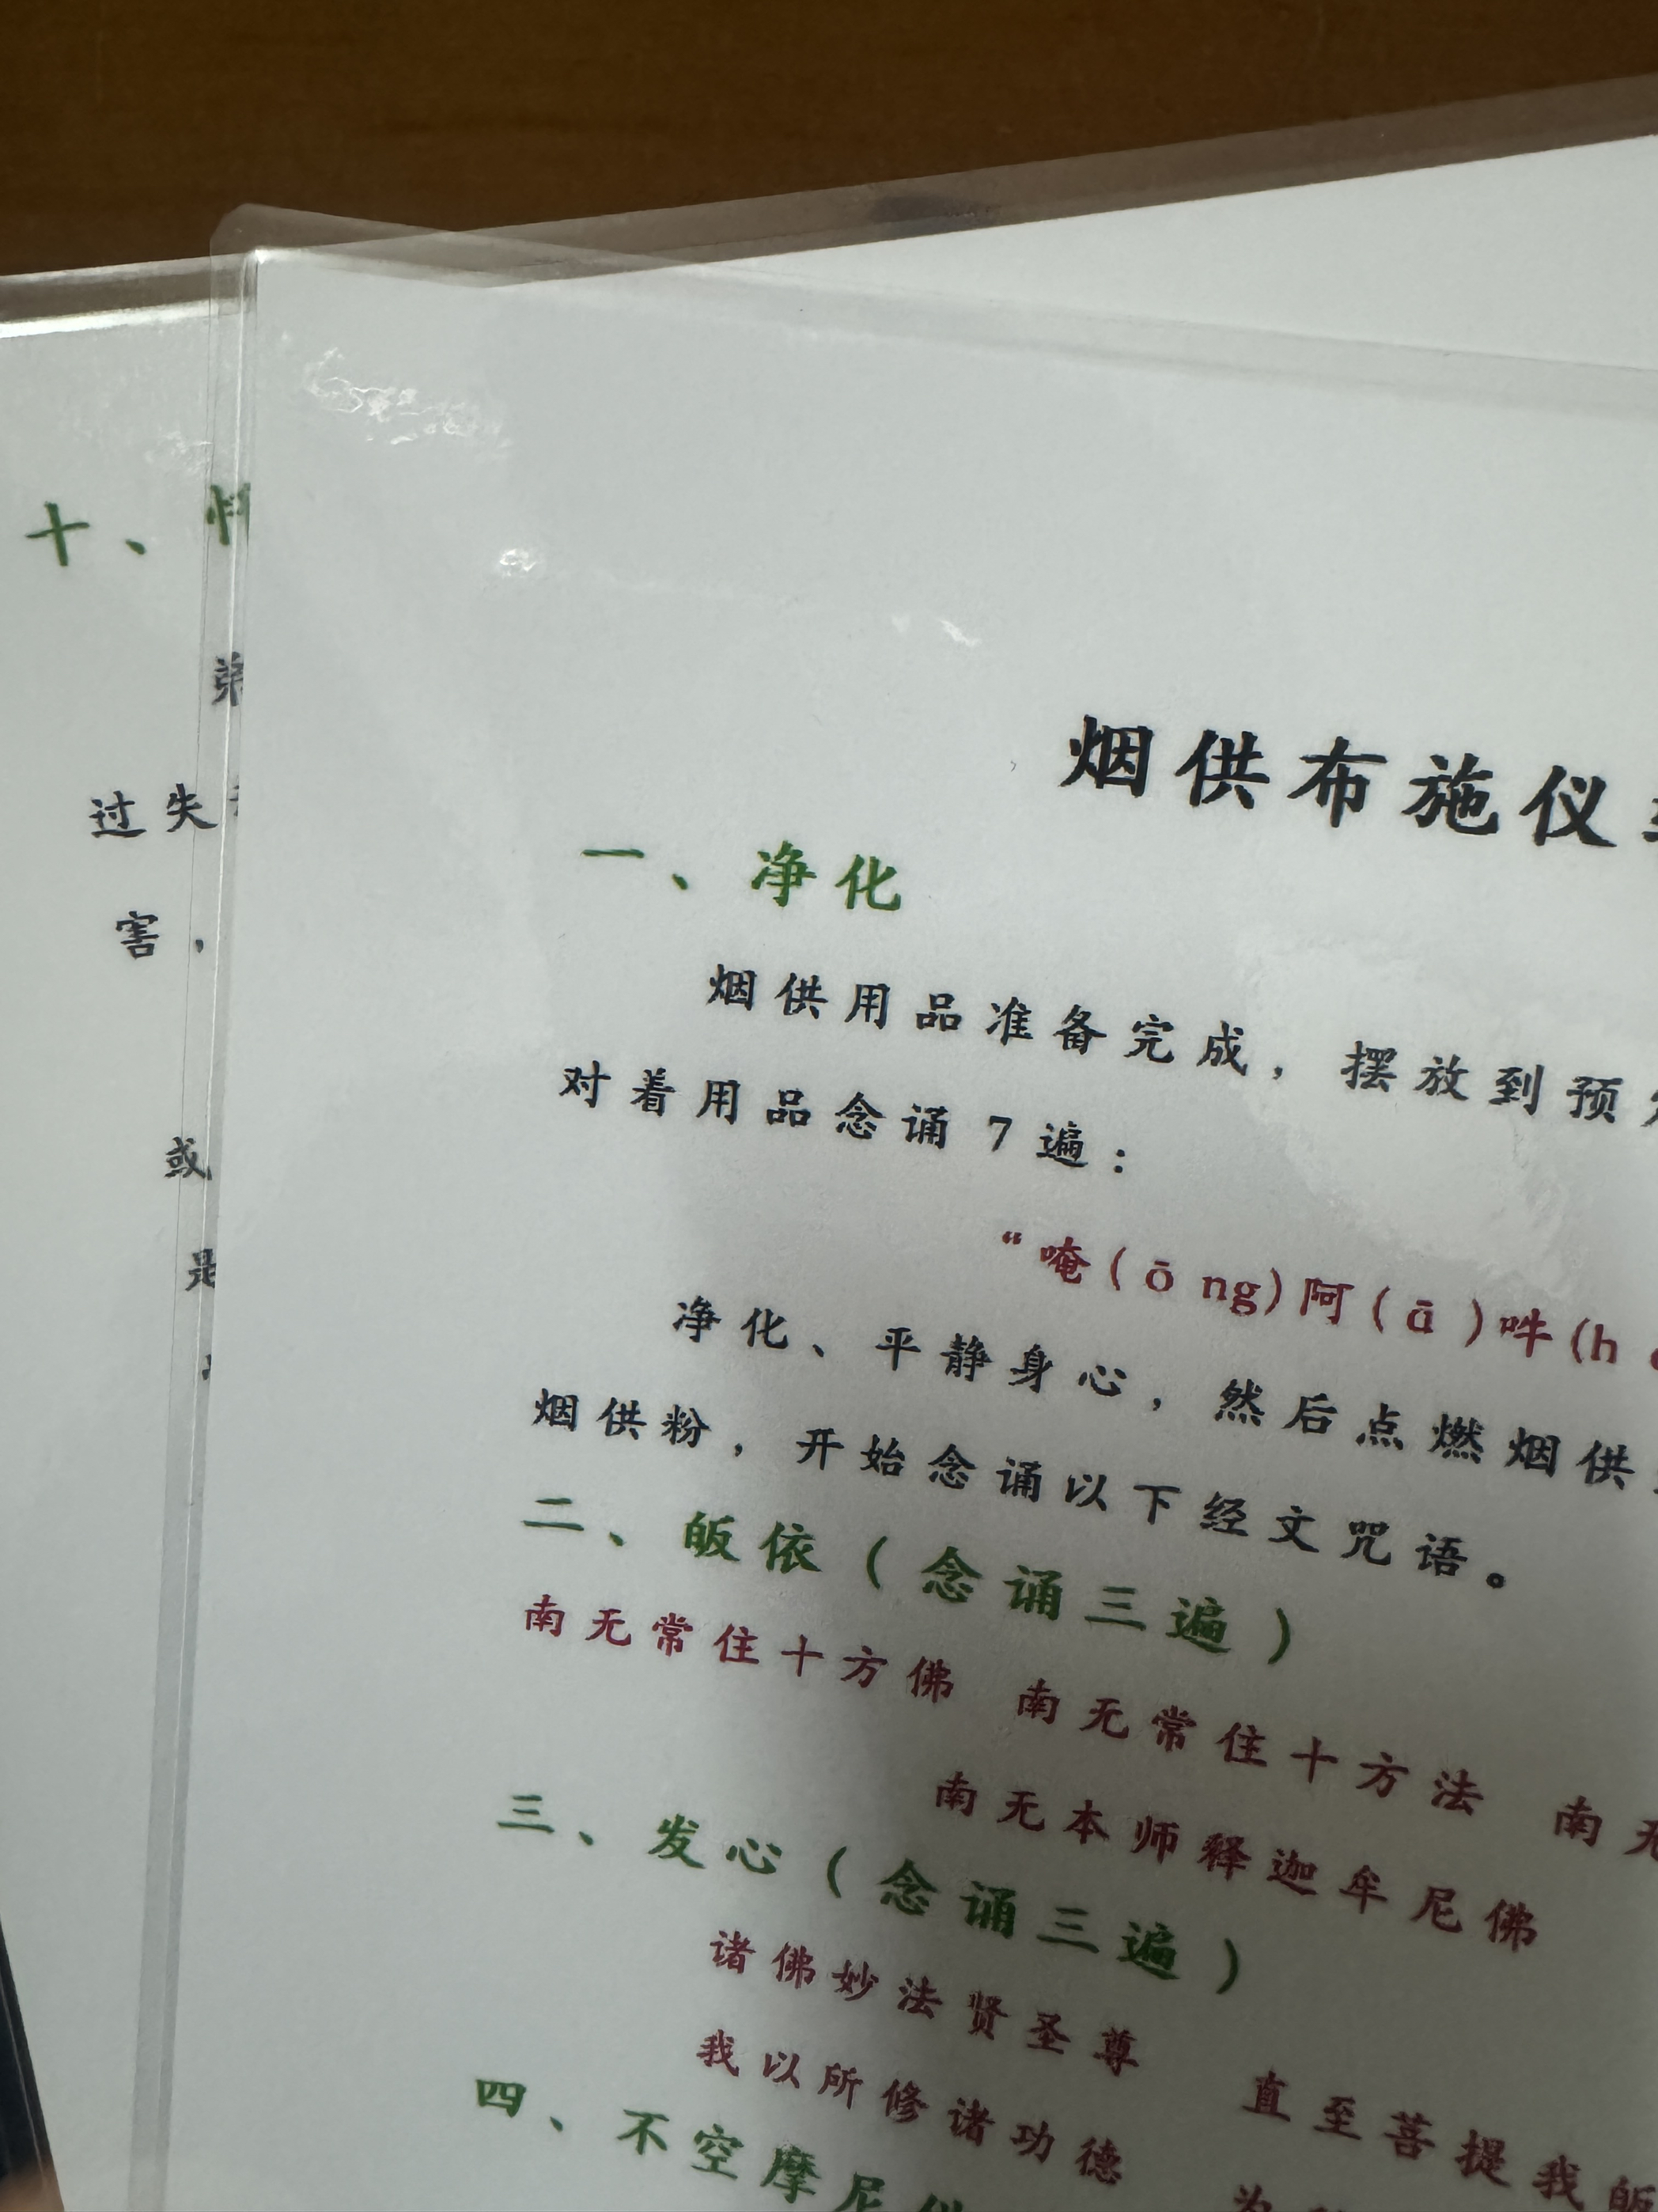 十、
过失
害，
或
是
烟供布施仪
一、净化
烟供用品准备完成，摆放到预
对着用品念诵 7 遍：
“唵(ōng)阿(ā)吽(h
净化、平静身心，然后点燃烟供
烟供粉，开始念诵以下经文咒语。
二、皈依（念诵三遍）
南无常住十方佛 南无常住十方法 南无
南无本师释迦牟尼佛
三、发心（念诵三遍）
诸佛妙法贤圣尊 直至菩提我皈
我以所修诸功德 为
四、不空摩尼